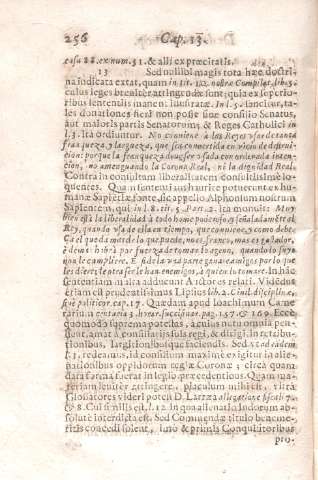 256 Cap. 13.
casu 88. ex num. 31. & alij ex præcitatis.
13 Sed nullibi magis tota hæc doctri-
na indicata extat, quam in tit. 12. nostræ Compilat. lib. 5.
cuius leges breviter attingendæ sunt, quia ex superio-
ribus sententijs manent illustratæ. In l. 5. sancitur, ta-
les donationes fieri non posse sine consilio Senatus,
aut maioris partis Senatorum, & Reges Catholici in
l. 3. ita ordinunt. No conviene à los Reyes usar de tanta
franqueza, y largueza, que sea convertida en vicio de destrui-
cion: porque la franqueza deve ser usada con ordenada inten-
cion, no amenguando la Corona Real, ni la dignidad Real.
Contra inconsultam liberalitatem consultissimè lo-
quentes. Quam sententiam haurire potuerunt ex hu-
manæ Sapientiæ fonte, sic appello Alphonsum nostrum
Sapientem, qui in l. 18. tit. 5. Part. 2. ita monuit: Muy
bien està la liberalidad à todo home poderoso, y señaladamẽte al
Rey, quando usa de ella en tiempo, que conviene, y como debe.
Ca el que dà mas de lo que puede, no es franco, mas es gastador,
è demàs havrà por fuerza de tomar lo ageno, quando lo suyo
non le cumpliere. E si de la una parte ganare amigos por lo que
les diere, de otra serle han enemigos, à quien lo tomare. In hãc
sententiam multa adducunt Auctores relati. Videndus
etiam est prudentissimus Lipsius lib. 2. Civil. disciplinæ,
sive politicor. cap. 17. Quædam apud Ioachimum Came-
rarium centuria 3. horar. succisivar. pag. 157. & 169. Ecce
quomodo suprema potestas, à cuius nutu omnia pen-
dent, amat à consilijs ijsuls regi, & dirigi, in retribu-
tionibus, largitionibusque faciendis. Sed ut ad eadem
l. 3. redeamus, id consilium maximè exigitur in alie-
nationibus oppidorum regiæ Coronæ; circa quam
data forma fuerat in legib. præcedentibus. Quam ma-
teriam leviter attingere, placulum mihi est, ultrà
Glosatores videri potest D. Larrea allegatione fiscali 7.
& 8. Cui similis est, l. 12. in qua alienatio Iudæorum ab-
solutè interdicta est. Sed Commendæ titulo benemè-
ritis concedi solent, imò & primis Conquisitoribus
pro-